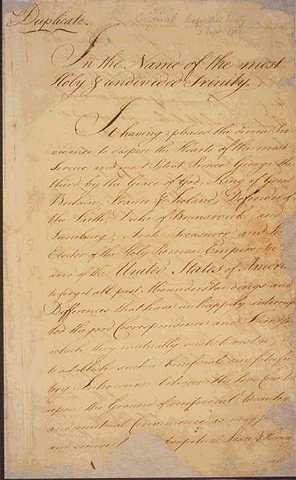 Duplicate.
Original Definitive Treaty
In the Name of the most
Holy & undivided Trinity.
It having pleased the Divine Pro-
vidence to dispose the Hearts of the most
Serene and most Potent Prince George the
third, by the Grace of God, King of Great
Britain, France & Ireland, Defender of
the Faith, Duke of Brunswick and
Lunebourg, Arch Treasurer, and
Elector of the Holy Roman Empire
and of the United States of America
to forget all past Misunderstandings and
Differences that have unhappily interrup-
ted the good Correspondence and Friendship
which they mutually wish to restore;
to establish such a beneficial
Intercourse between the two Countries
upon the Ground of reciprocal
and mutual Convenience as may
and secure perpetual Peace &